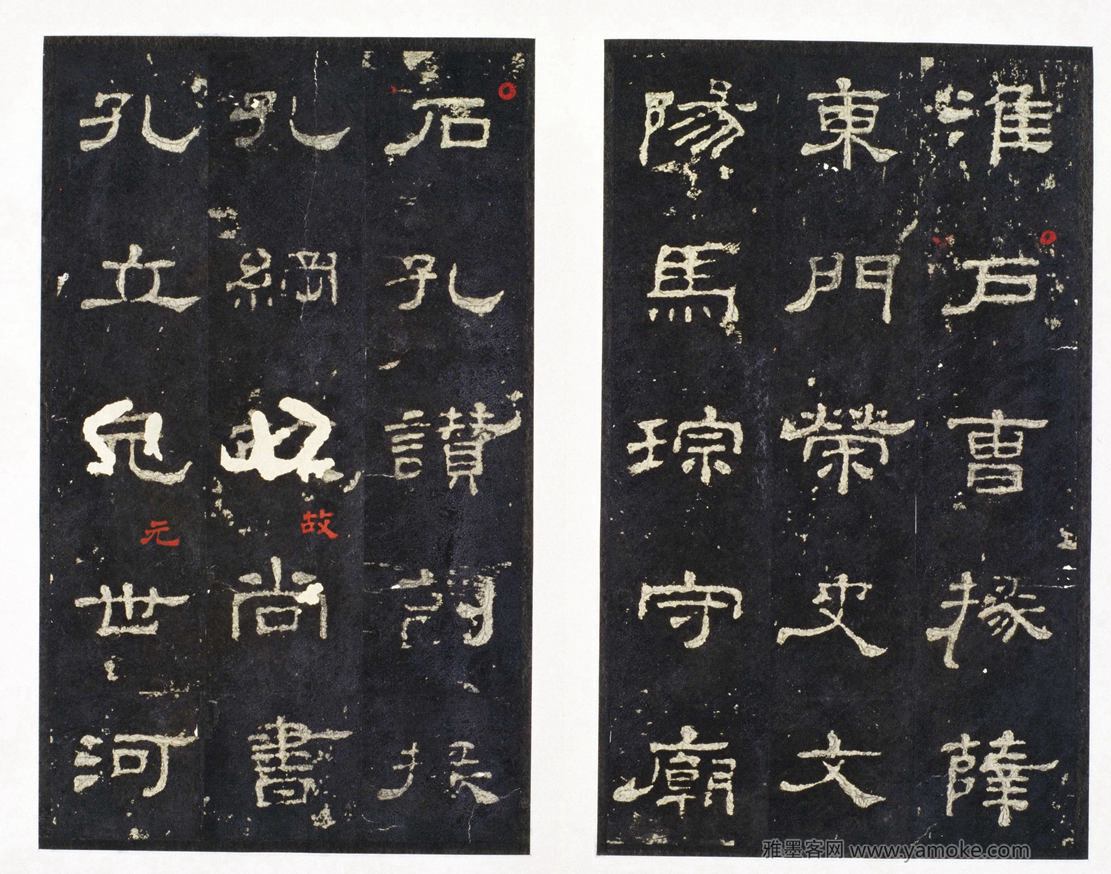 淮戶曹掾薛
東門榮史文
陽馬琮守廟
石孔讚副掾
孔綱故尚書
故
孔立元世河
元
雅墨客网 www.yamoke.com